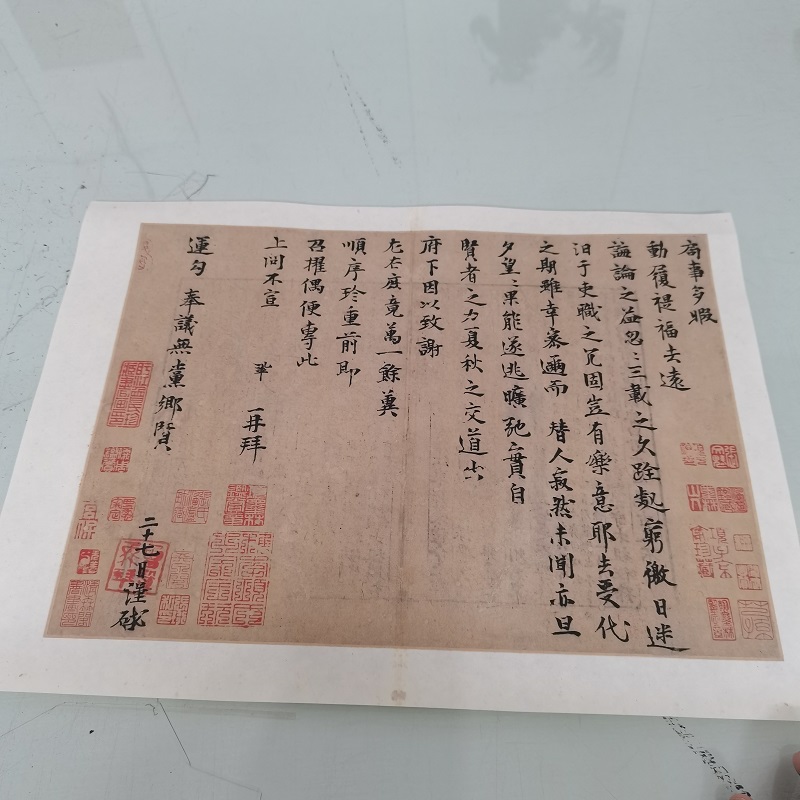 局事多暇
動履禔福去遠
議論之益忽〻三載之久跧處窮徼日迷
汨于吏職之冗固豈有樂意耶去受代
之期雖幸密邇而 替人寂然未聞亦旦
夕望〻果能遂逃曠弛實自
賢者之力夏秋之交道出
府下因以致謝
左右庶竟萬一餘冀
順序珍重前即
召擢偶便專此
上問不宣 鞏 再拜
運勾 奉議無黨鄉賢
二十七日謹啟